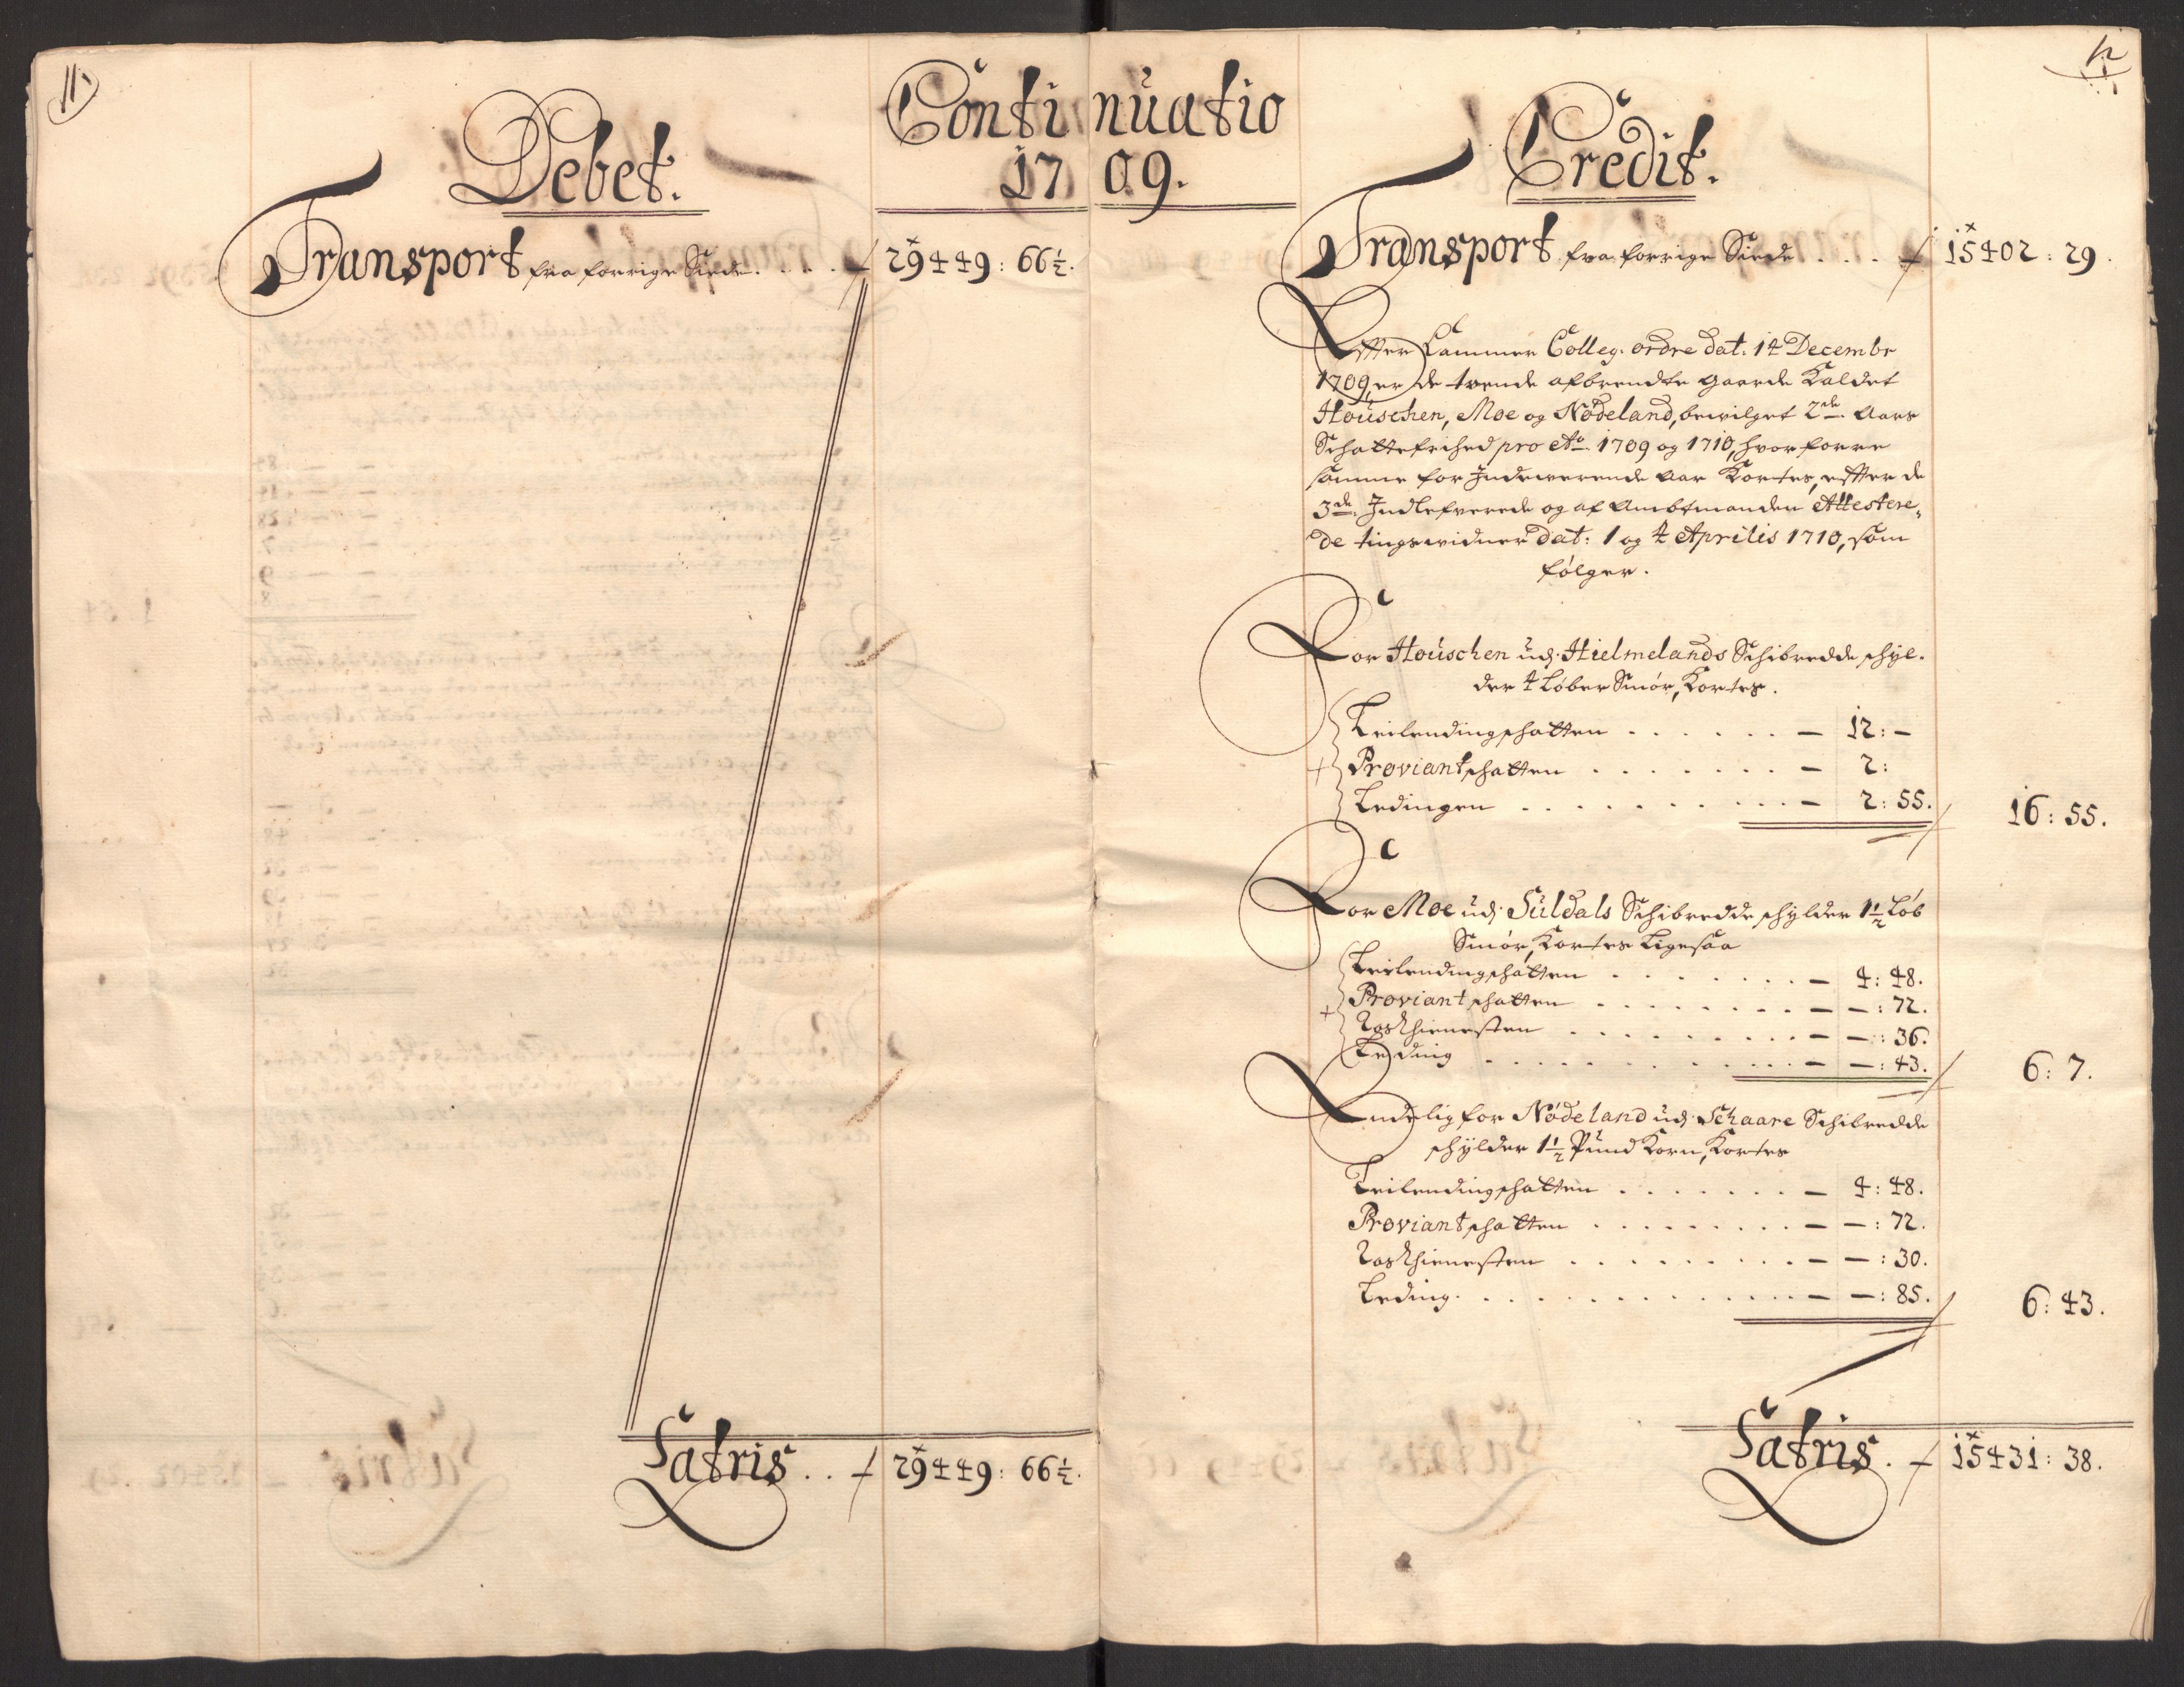 11.
Continuatio
1709.
Debet.
Transport fra forrige Siede . . . . 29449: 66½.
Latris . . 29449: 66½.
12
Credit.
Transport fra forrige Siede . . . . 15402: 29.
Effter Cammer Colleg. ordre dat: 14 Decembr
1709, er de tvende afbrendte gaarde Kaldet
Houschen, Moe og Nødeland, bevilget 2de Aars
Schattefrihed pro Ao 1709 og 1710, hvorforre
samme for Indeverende Aar Kortes, effter de
3de Indlefverede og af Ambtmanden Attestere,
de tingsvidner dat: 1 og 4 Aprilis 1710, som
følger.
For Houschen udj Hielmelands Schibredde schyl-
der 4 Løber Smør, Kortes.
Leilendingschatten . . . . . . — 12: —
Proviantschatten . . . . . . . — 2:
Ledingen . . . . . . . . . . — 2: 55.
16: 55.
For Moe udj Suldals Schibredde schylder 1½ Løb
Smør, Kortes Ligesaa
Leilendingschatten . . . . . . . — 4: 48.
Proviantschatten . . . . . . . . — —: 72.
Rosthienesten . . . . . . . . . — —: 36.
Leding . . . . . . . . . . . . — —: 43.
6: 7.
Endelig for Nødeland udj Schaare Schibredde
schylder 1½ Pund Korn, Kortes
Leilendingschatten . . . . . . . — 4: 48.
Proviantschatten . . . . . . . . — —: 72.
Rosthienesten . . . . . . . . . — —: 30.
Leding . . . . . . . . . . . . . — —: 85.
6: 43.
Latris . 15431: 38.